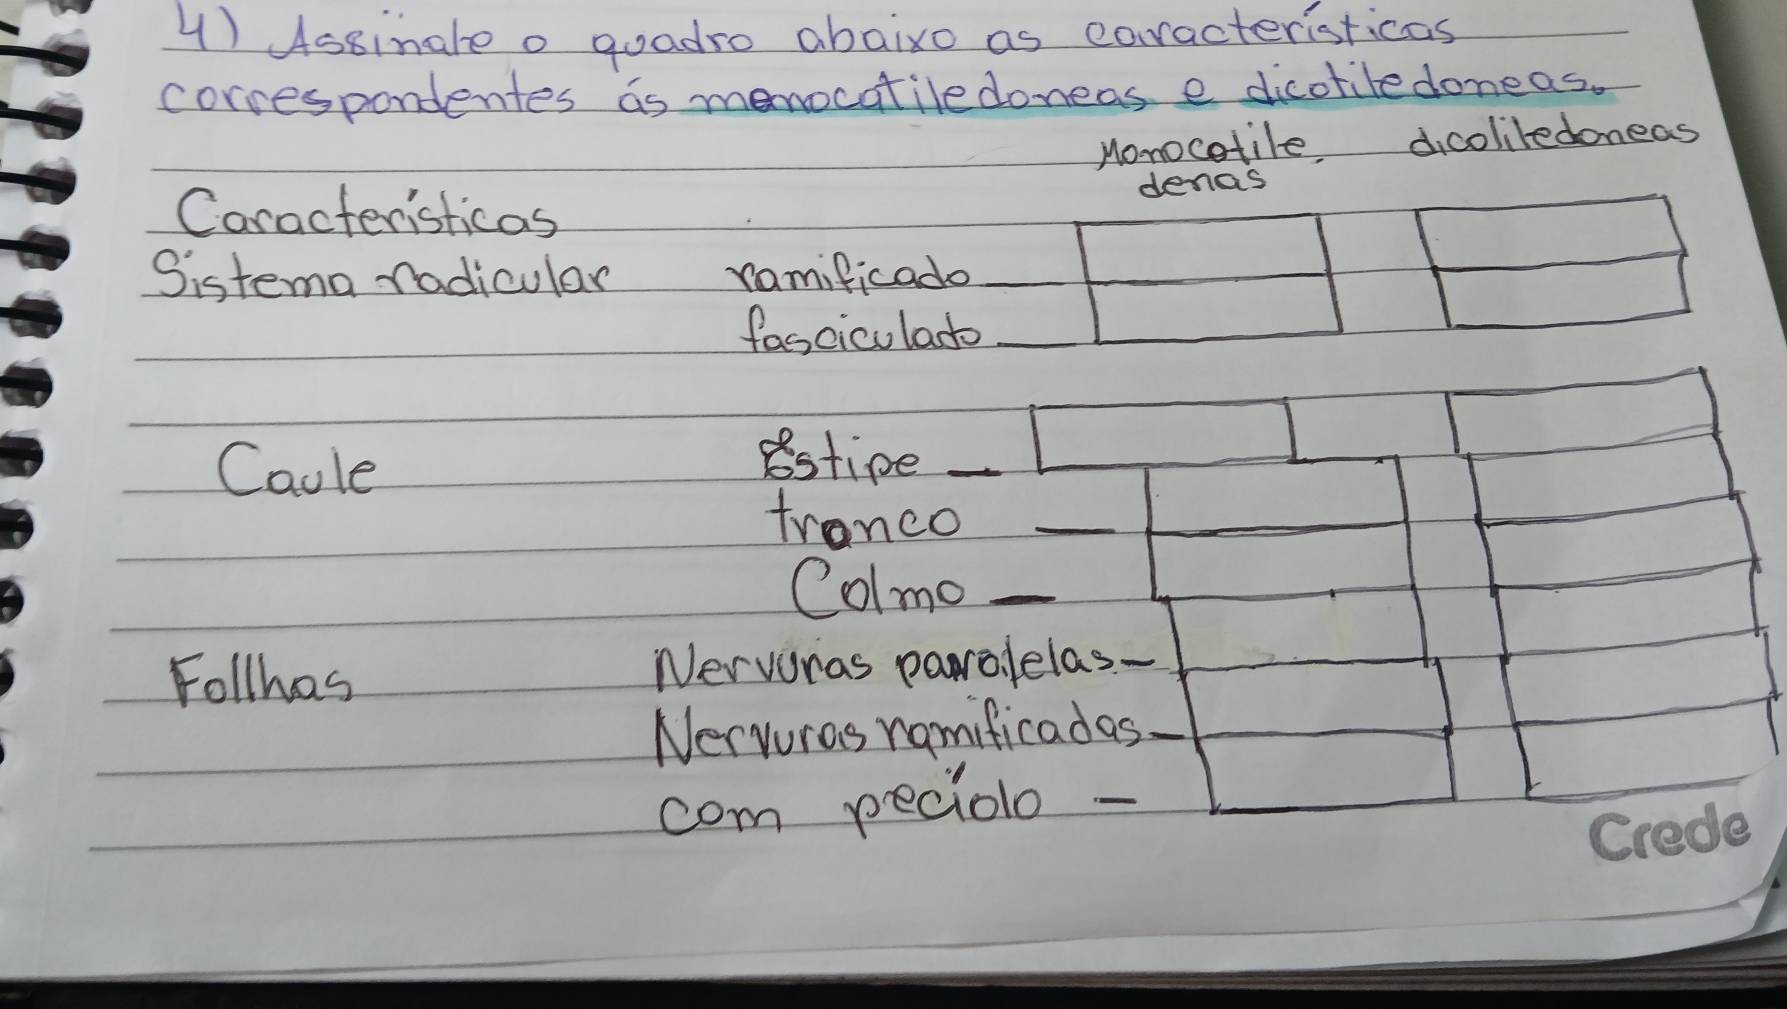 4) Assinale o quadro abaixo as características
correspondentes ás monocatiledoneas e dicotiledoneas.
Monocotile. dicoliledoneas
denas
Características
Sistema radicular ramificado
fasciculado
Caule Estipe —
tronco —
Colmo —
Follhas Nervuras paralelas -
Nervuras ramificadas -
com pecíolo -
Crede